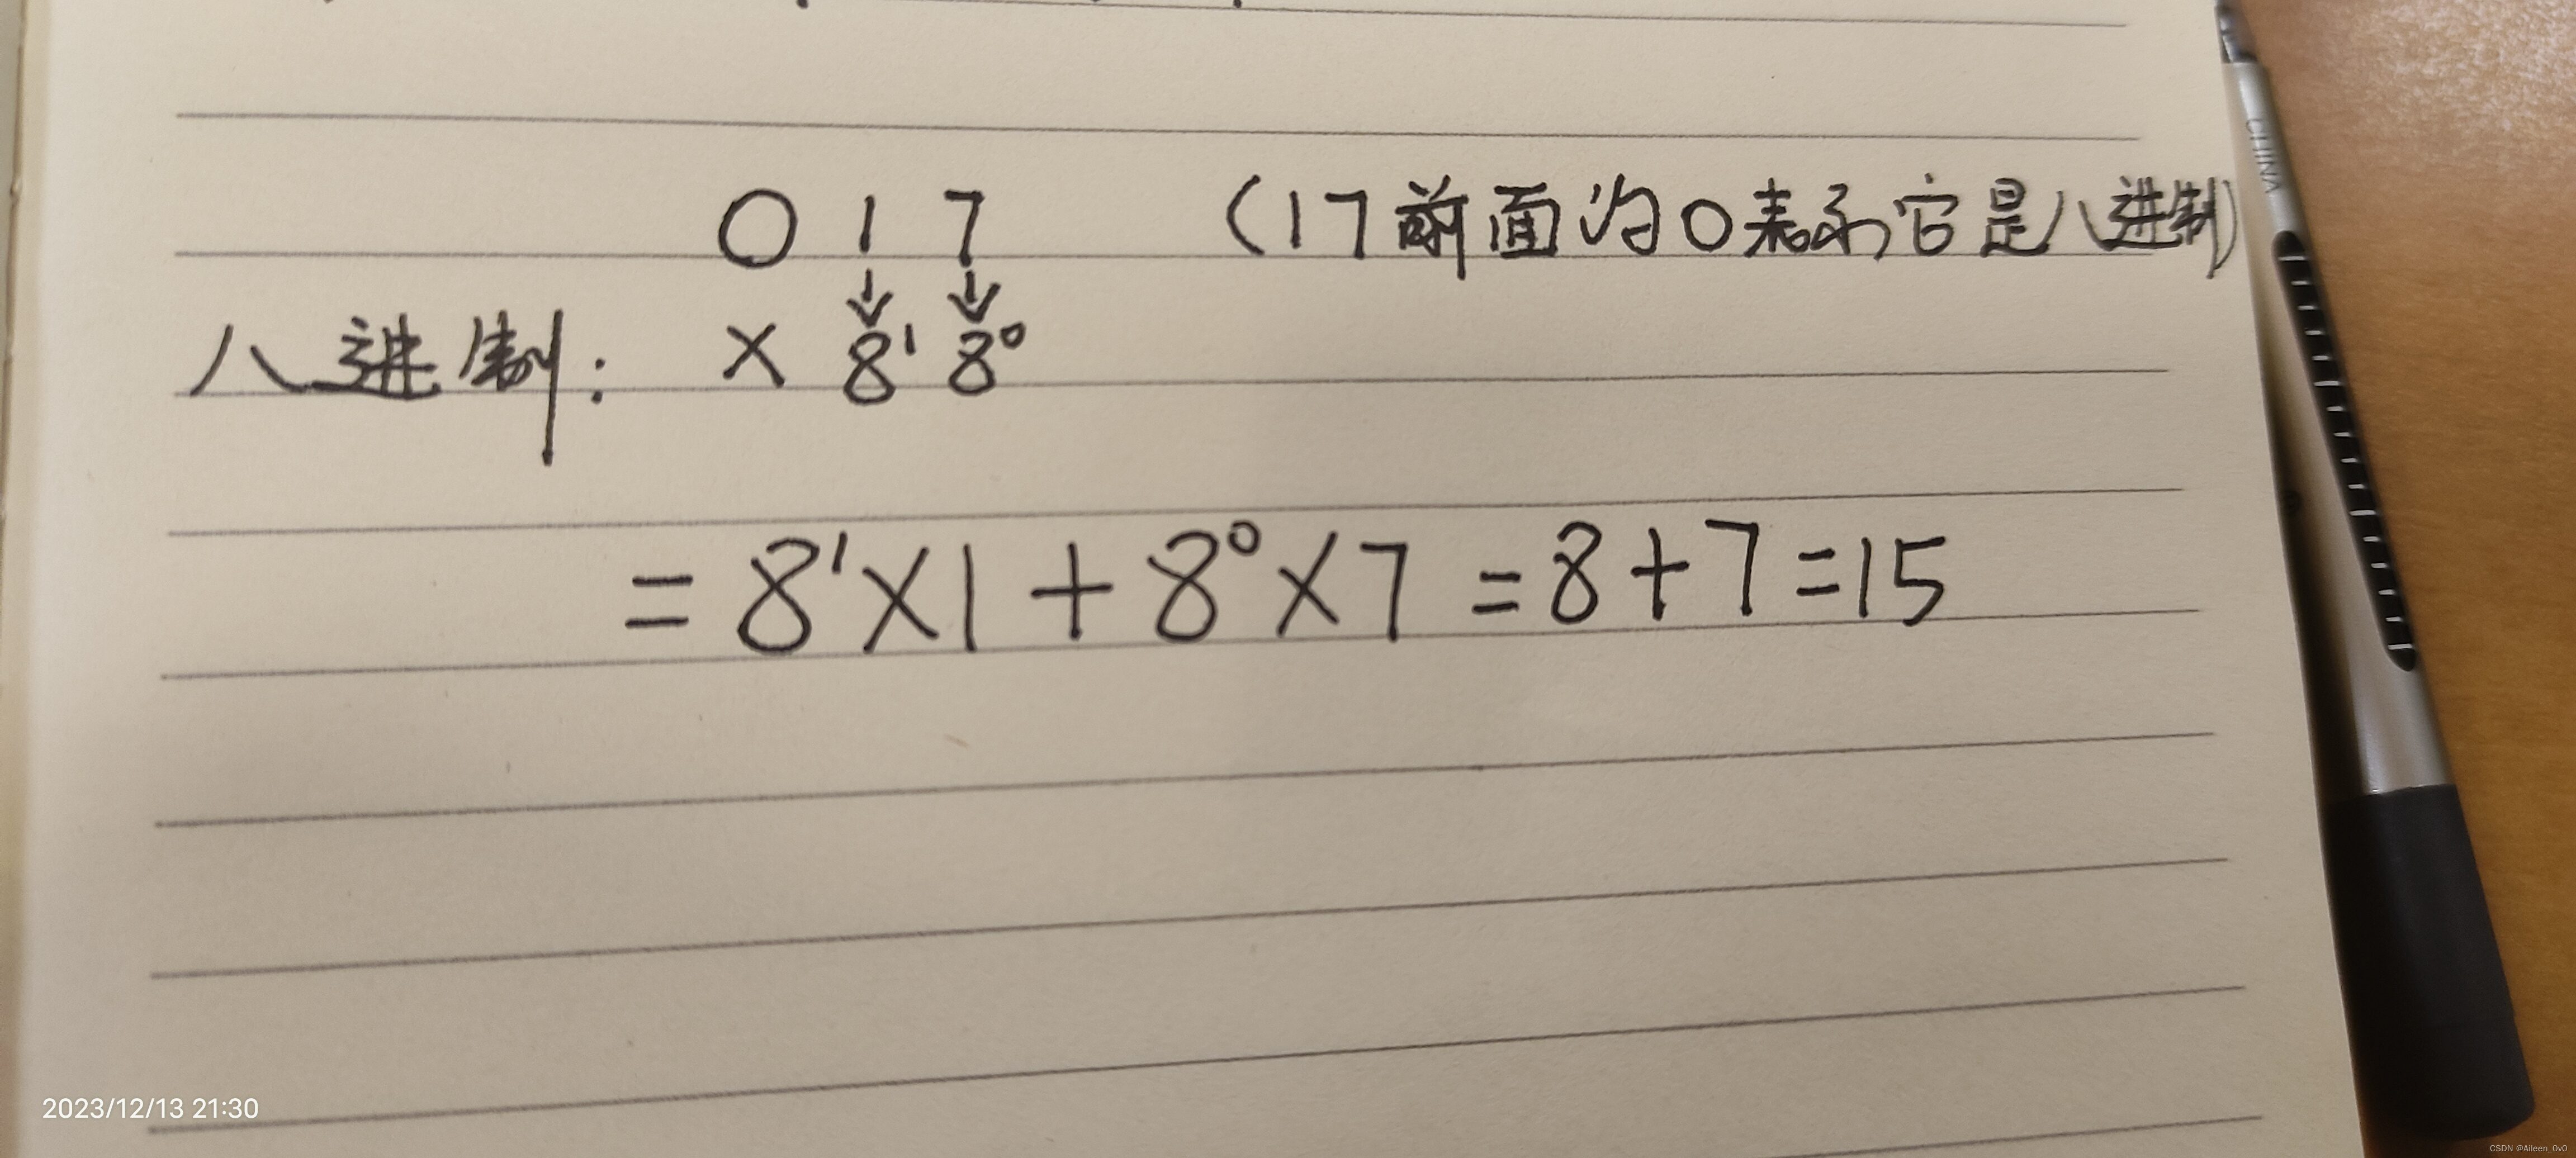 0 1 7 (17前面的0表示它是八进制)
↓ ↓
八进制: × 8¹ 8⁰
= 8¹×1 + 8⁰×7 = 8+7=15
CHINA
2023/12/13 21:30
CSDN @Aileen_0v0